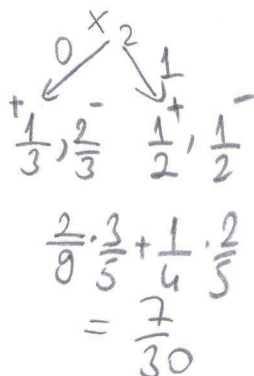 x₂
0 1
+ 1/3, 2/3 - 1/2 +, 1/2 -
2/9 · 3/5 + 1/4 · 2/5
= 7/30